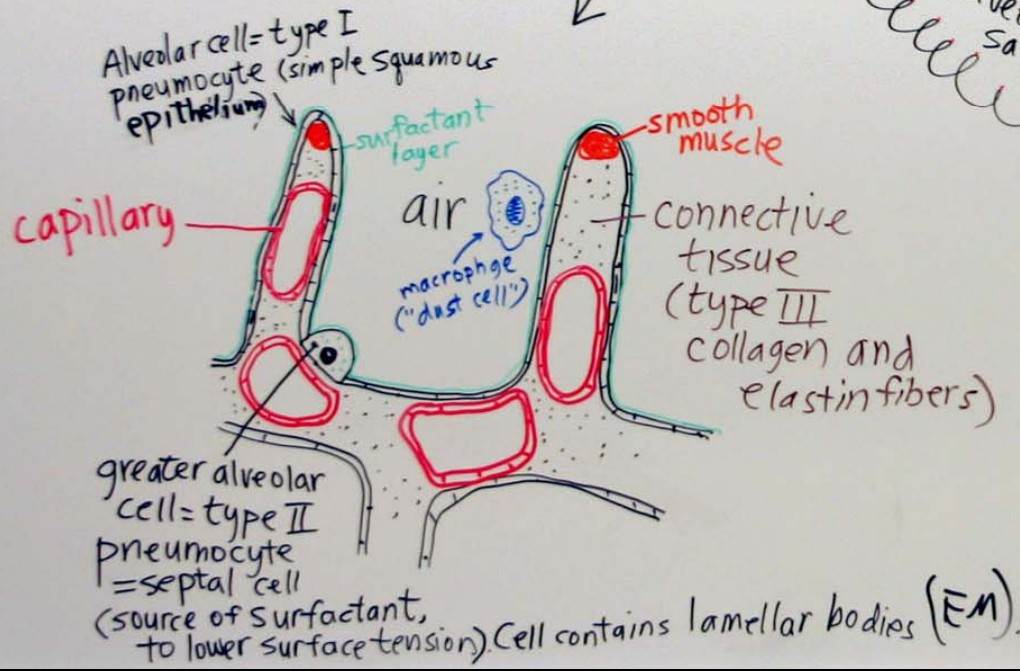 Alveolar cell= type I
pneumocyte (simple squamous
epithelium)
surfactant
layer
smooth
muscle
capillary
air
macrophge
("dust cell")
connective
tissue
(type III
collagen and
elastin fibers)
greater alveolar
cell= type II
pneumocyte
=septal cell
(source of surfactant,
to lower surface tension). Cell contains lamellar bodies (EM).